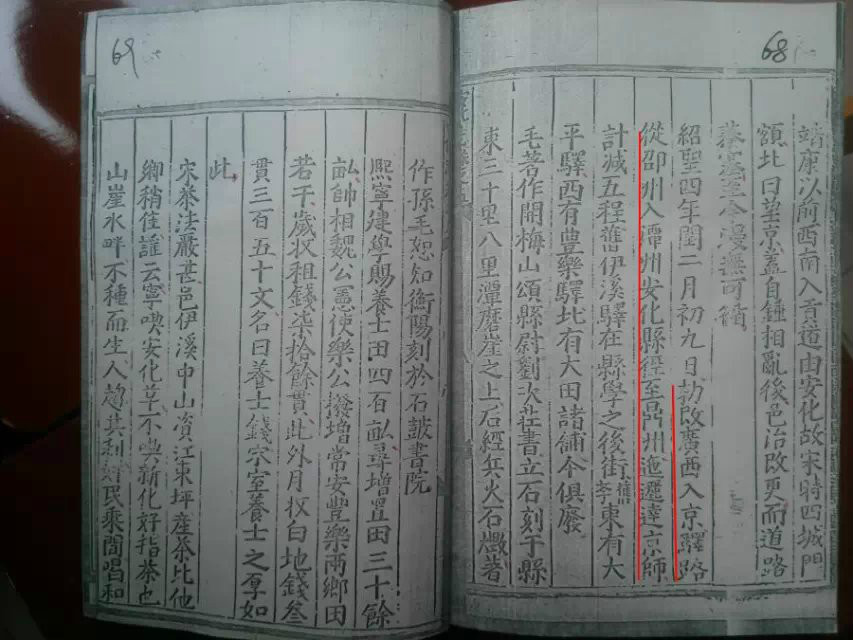 68
靖康以前西南入貢道由安化故宋時四城門
額北曰望京蓋自鍾相亂後邑治改更而道路
蓁塞至今漫無可稽
紹聖四年閏二月初九日勑改廣西入京驛路
從邵州入潭州安化縣徑至鼎州迤邐達京師
計減五程舊伊溪驛在縣學之後街舊李東有大
平驛西有豊樂驛北有大田諸舖今俱廢
毛著作開梅山頌縣尉劉次莊書立石刻于縣
東三十里八里潭磨崖之上石經兵火石燬著
69
作孫毛恕知衡陽刻於石鼓書院
熙寧建學賜養士田四百畝尋增置田三十餘
畝帥相魏公憲使樂公撥增常安豊樂兩鄉田
若干歲收租錢柒拾餘貫此外月收白地錢叁
貫三百五十文名曰養士錢宋室養士之厚如
此
宋茶法嚴甚邑伊溪中山資江東坪產茶比他
鄉稍佳諺云寧喫安化草不喫新化好指茶也
山崖水畔不種而生人趨其利奸民乘間唱和